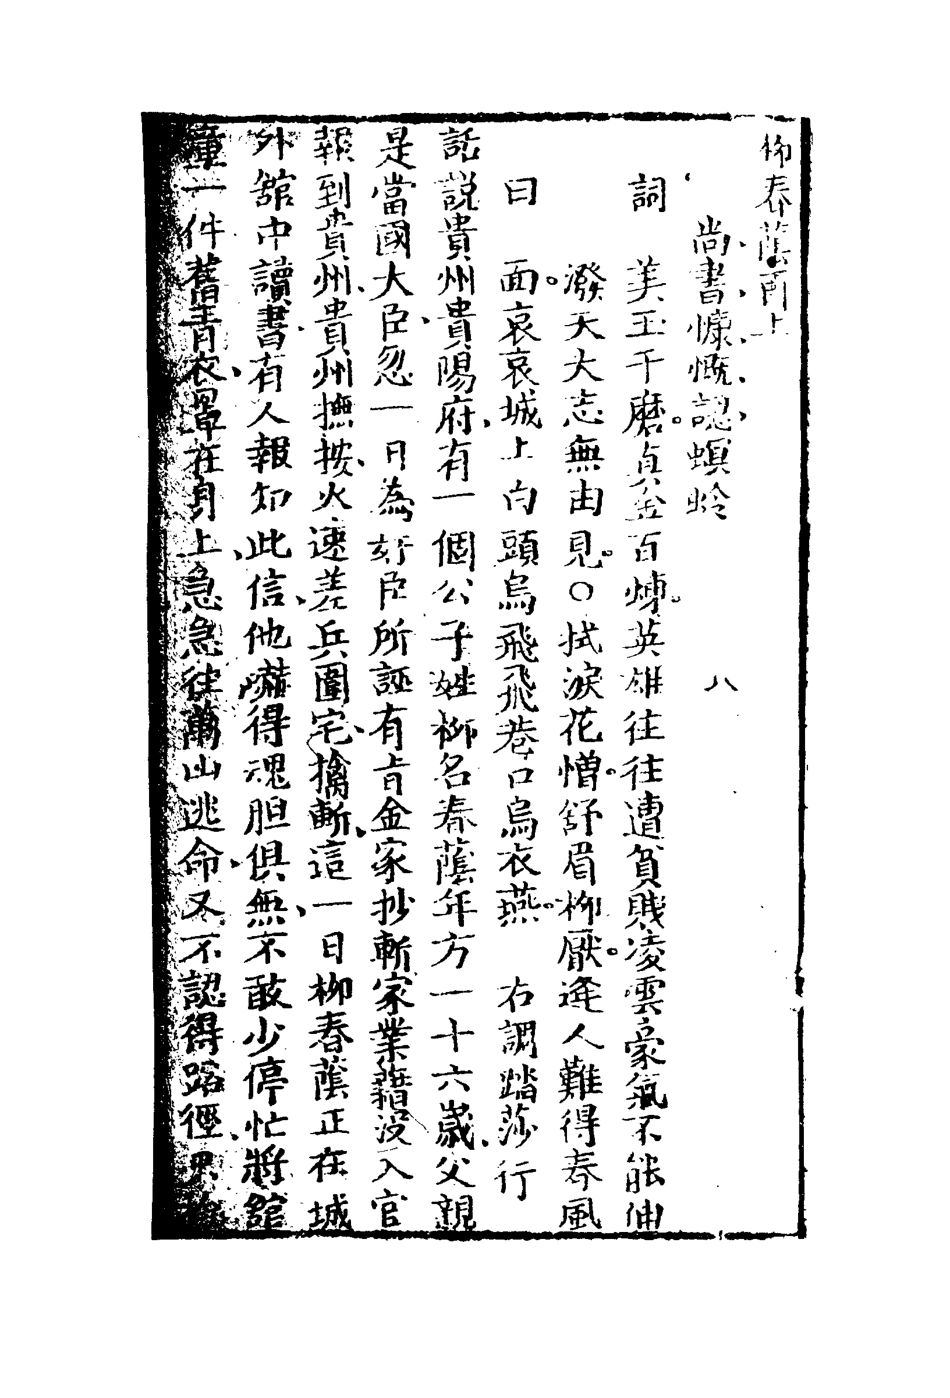 柳春䕃 甬上
尚書慷慨認螟蛉
八
詞　美玉千磨。真金百煉。英雄往往遭貧賤凌雲豪氣不能伸
潑天大志無由見。○拭淚花憎。舒眉柳厭。逢人難得春風
曰　面。哀哀城上白頭烏飛飛巷口烏衣燕。　右調踏莎行
話説貴州貴陽府、有一個公子姓柳名春䕃年方一十六歲、父親
是當國大臣、忽一日為奸臣所誣有旨金家抄斬家業籍没入官
報到貴州、貴州撫按、火速差兵圍宅、擒斬、這一日柳春䕃正在城
外舘中讀書、有人報知此信、他嚇得魂胆俱無、不敢少停忙將舘
童一件舊青衣、罩在身上、急急往萬山逃命、又不認得路徑、